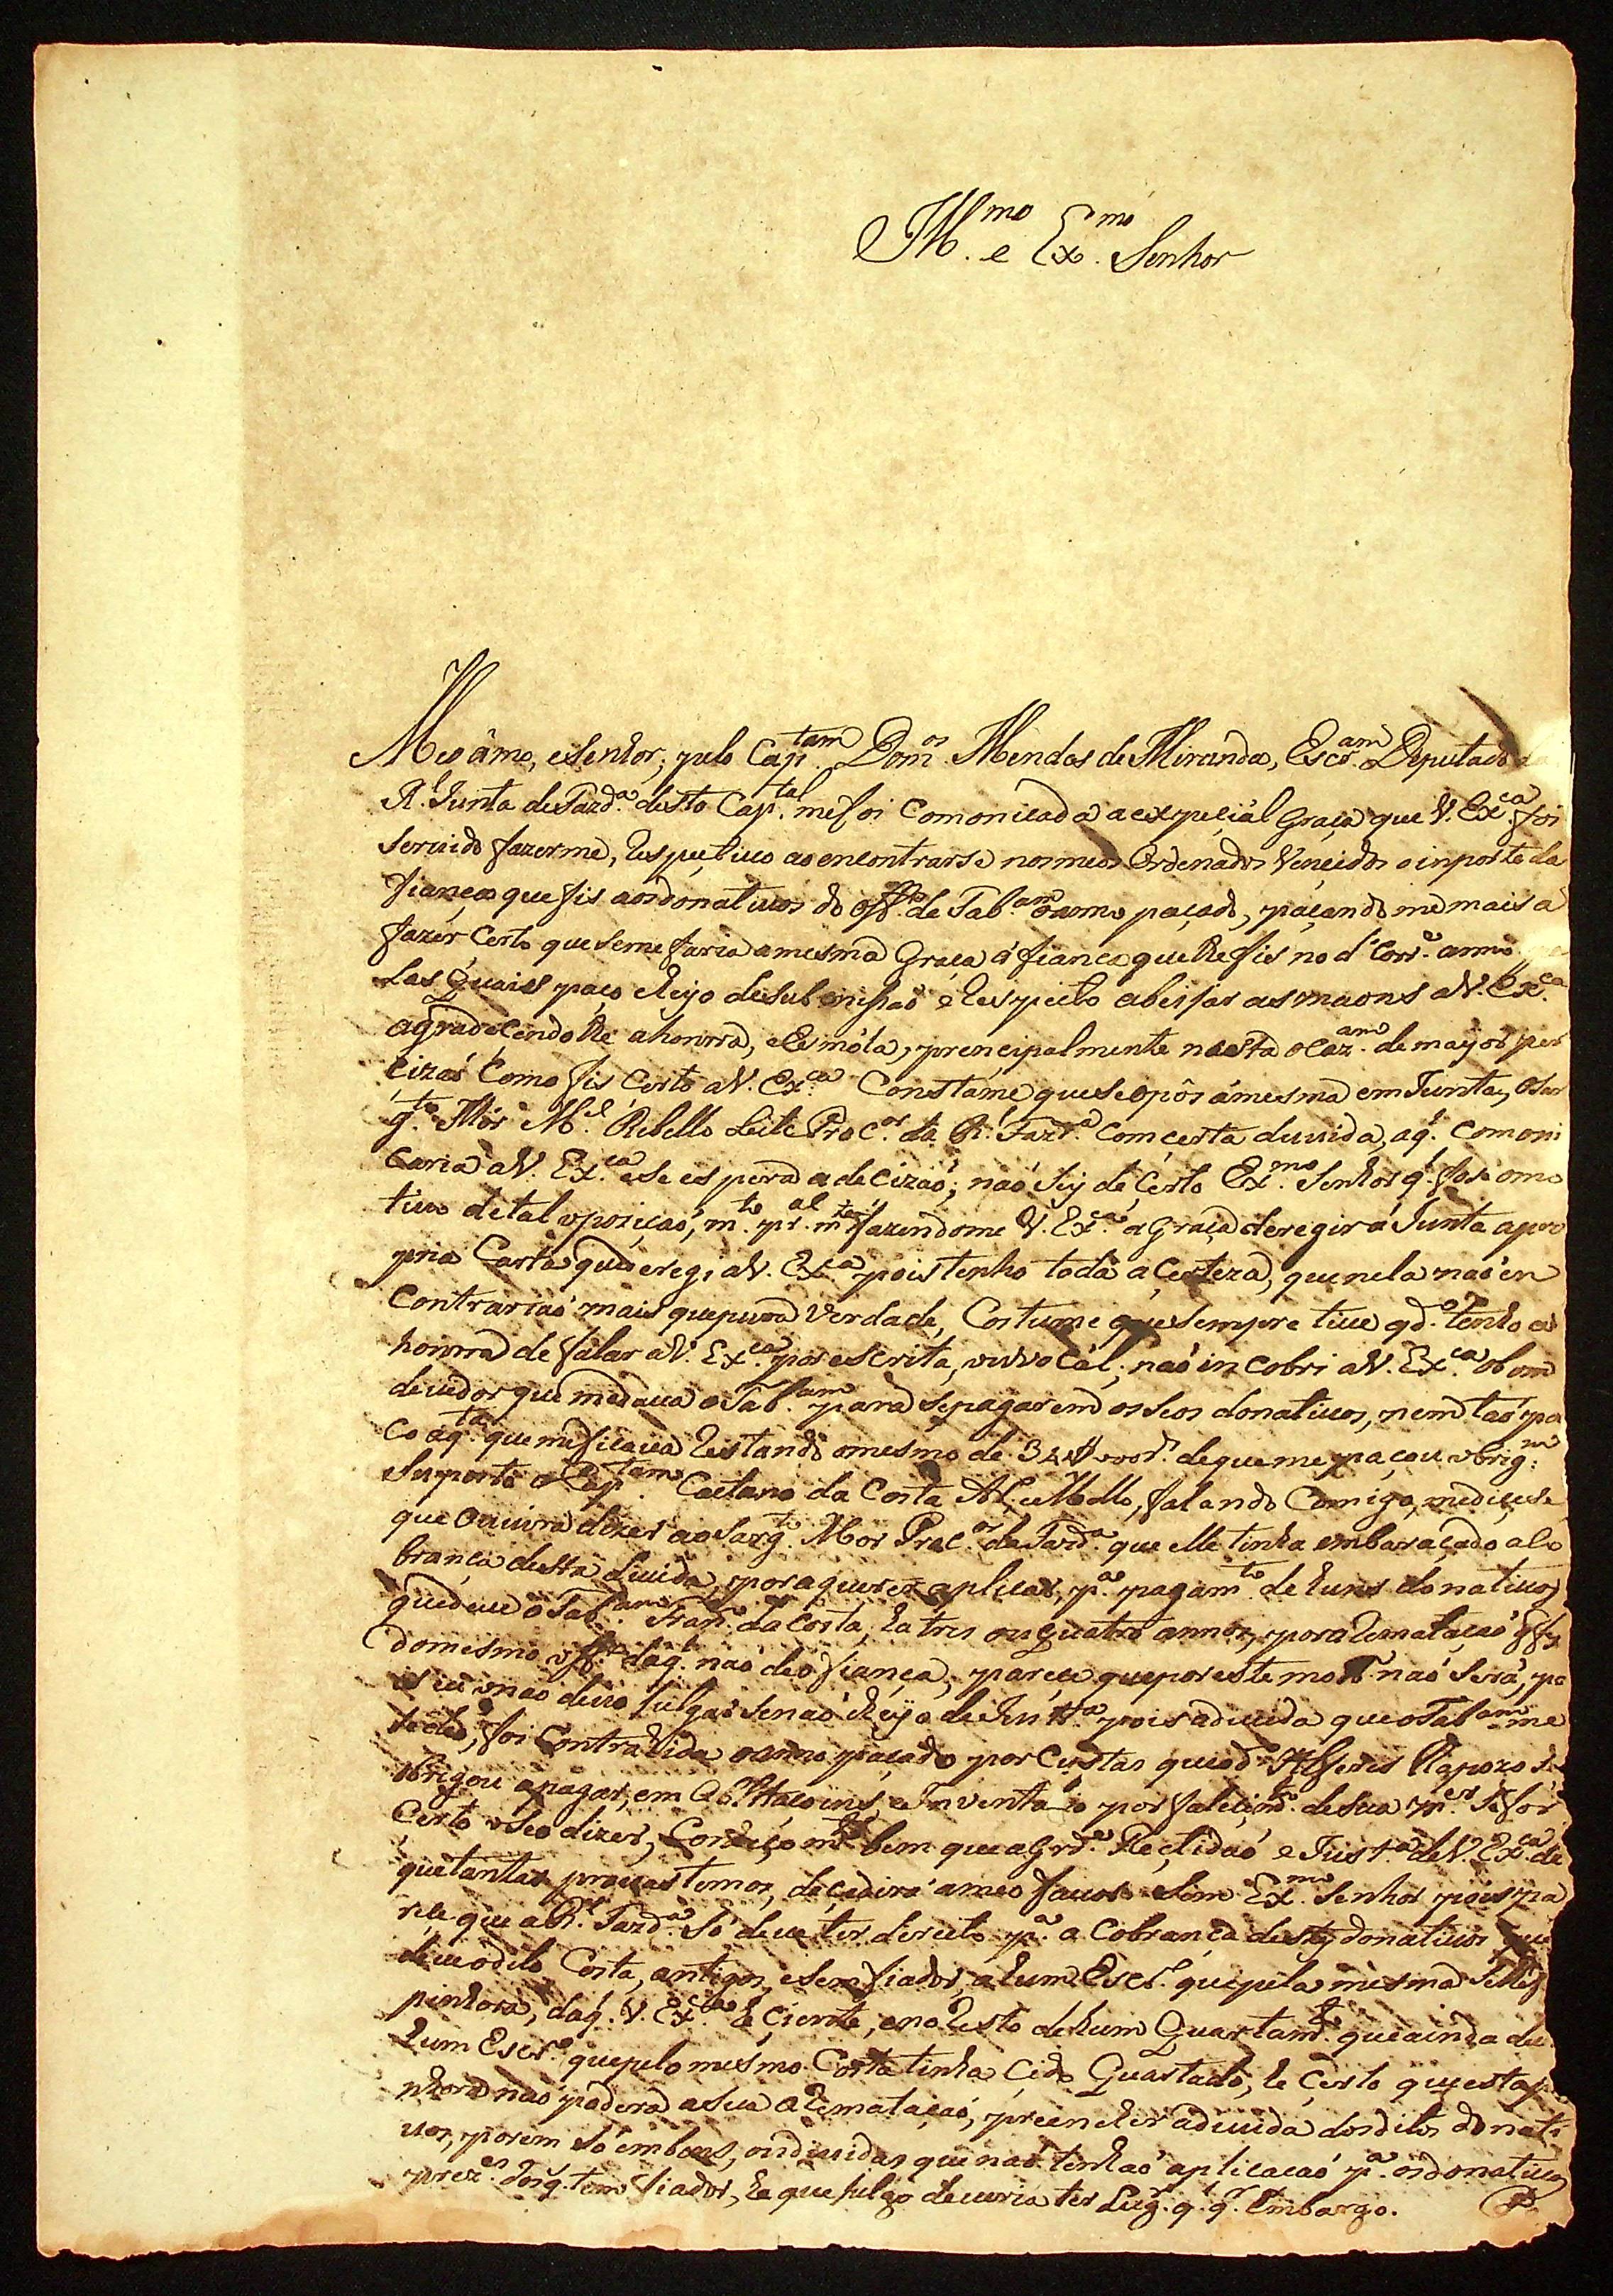 Ill.mo e Ex.mo Senhor
Meo âmo, e Senhor; pelo Cap.tam Dom.os Mendes de Miranda, Escr.am Deputado da
R.l Junta de Fazd.a desta Cap.tal me foi Comonicada a expeçiál Graça que V. Ex.ca foi
Seruido fazerme, Respectiuo ao encontrarse nos meos Ordenados Vençidos o inporte da
fiança que fis aos donatiuos do off.o de Tab.am o anno paçado, paçando me mais a
fazér Certo que se me faria a mesma Graça á fiança que lhe fis no d.o Corr.e anno
Las Quais paço Rejo de Submição e Respeito abeijar as maons a V. Ex.ca
agradeCendo lhe a honrra, e Esmóla, prencipalmente nesta ocaz.am de mayor per
cizáo Como fis Certo a V. Ex.ca Constáme que se opôs á mesma em Junta, o Sar
g.to Mór M.el Ribello Leite Proc.or da R.l Fazd.a com certa duuida, a q.l comoni
Caria a V. Ex.ca e se espera a decizaó; naó sey de Certo Ex.mo Senhor q.l fose o mo
tiuo de tal opoziçaó, m.to pr.al m.te fazendome V. Ex.ca a Graça deregir á Junta a pro
pria Carta que deregi a V. Ex.ca pois tenho toda a Certeza, que nela naó en
Contrariaó mais que pura Verdade, Costume que sempre tiue qd.o tenho a
honrra de falar a V. Ex.ca por escrita, ou vocál; naó in cobri a V. Ex.ca o bom
deuedor que me daua o Tab.am para se pagarem os seos donatiuos, nem taó pa
Co a q.ta que me ficaua Restando o mesmo de de que me paçou obrig.m
Suposto o Cap.tam Caetano da Costa Al e Mello, falando Comigo, me diçese
que ouuira dizer ao Sarg.to Mor Proc.or da Fazd.a que elle tinha embaraçado a Co
brança desta Diuida, por a querer aplicar, p.a pagam.to de huns donatiuos
que deue o Tab.am Fran.co da Costa, ha tres ou quatro annos, por aRemataçaó q̃ fez
do mesmo off.o da q.l naó deo fiança; pareçe que por este mot.o naó será, po
is eu o naó deuo julgar senaó Reyo de Just.a pois a diuida que o Tab.am me
foi Contrahida o anno paçado por Custas que o d.o Alferes Rapozo se
obrigou a pagar, em e Inventario por faleçim.to de sua m.er Se for
Certo o seo dizer, Conheço m.to bem que a Grd.e Rectidaó e Just.a de V. Ex.ca de
que tantas prouas temos, deçedirá a meo fauor Sim Ex.mo Senhor pois pa
reçe que a R.l Fazd.a Só deue ter direito p.a a Cobrança destes donatiuos que
deue o dito Costa, antigos, e sem fiador, a hum Escr.o que pela mesma se lhe
pinhora, da q. V. Ex.ca he Çiente, e no Resto de hum Quartam.to que ainda de
hum Escr.o que pelo mesmo Costa tinha Çido Quartado, he Certo que esta pe
nhora naó poderá a sua aRemataçaó, preencher a diuida dos ditos donati
uos, porem só em bens, ou diuidas que naó tenhaó aplicacaó p.a os donatiuos
prez.es dos q. tem fiador, he que julgo deueria ter Lug.r q.l q.r Embargo.